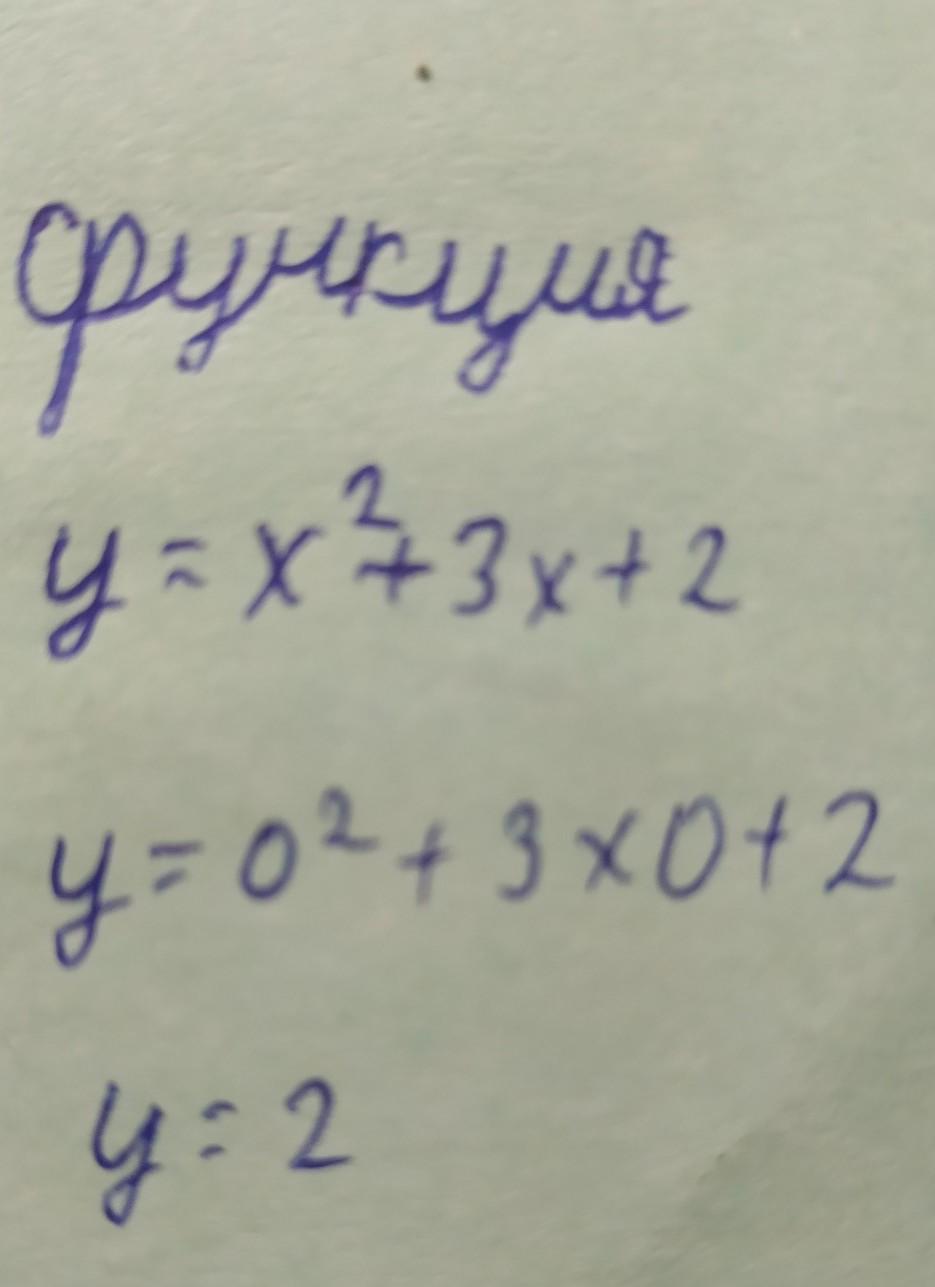 функция
y = x²+3x+2
y = 0² + 3×0+2
y = 2